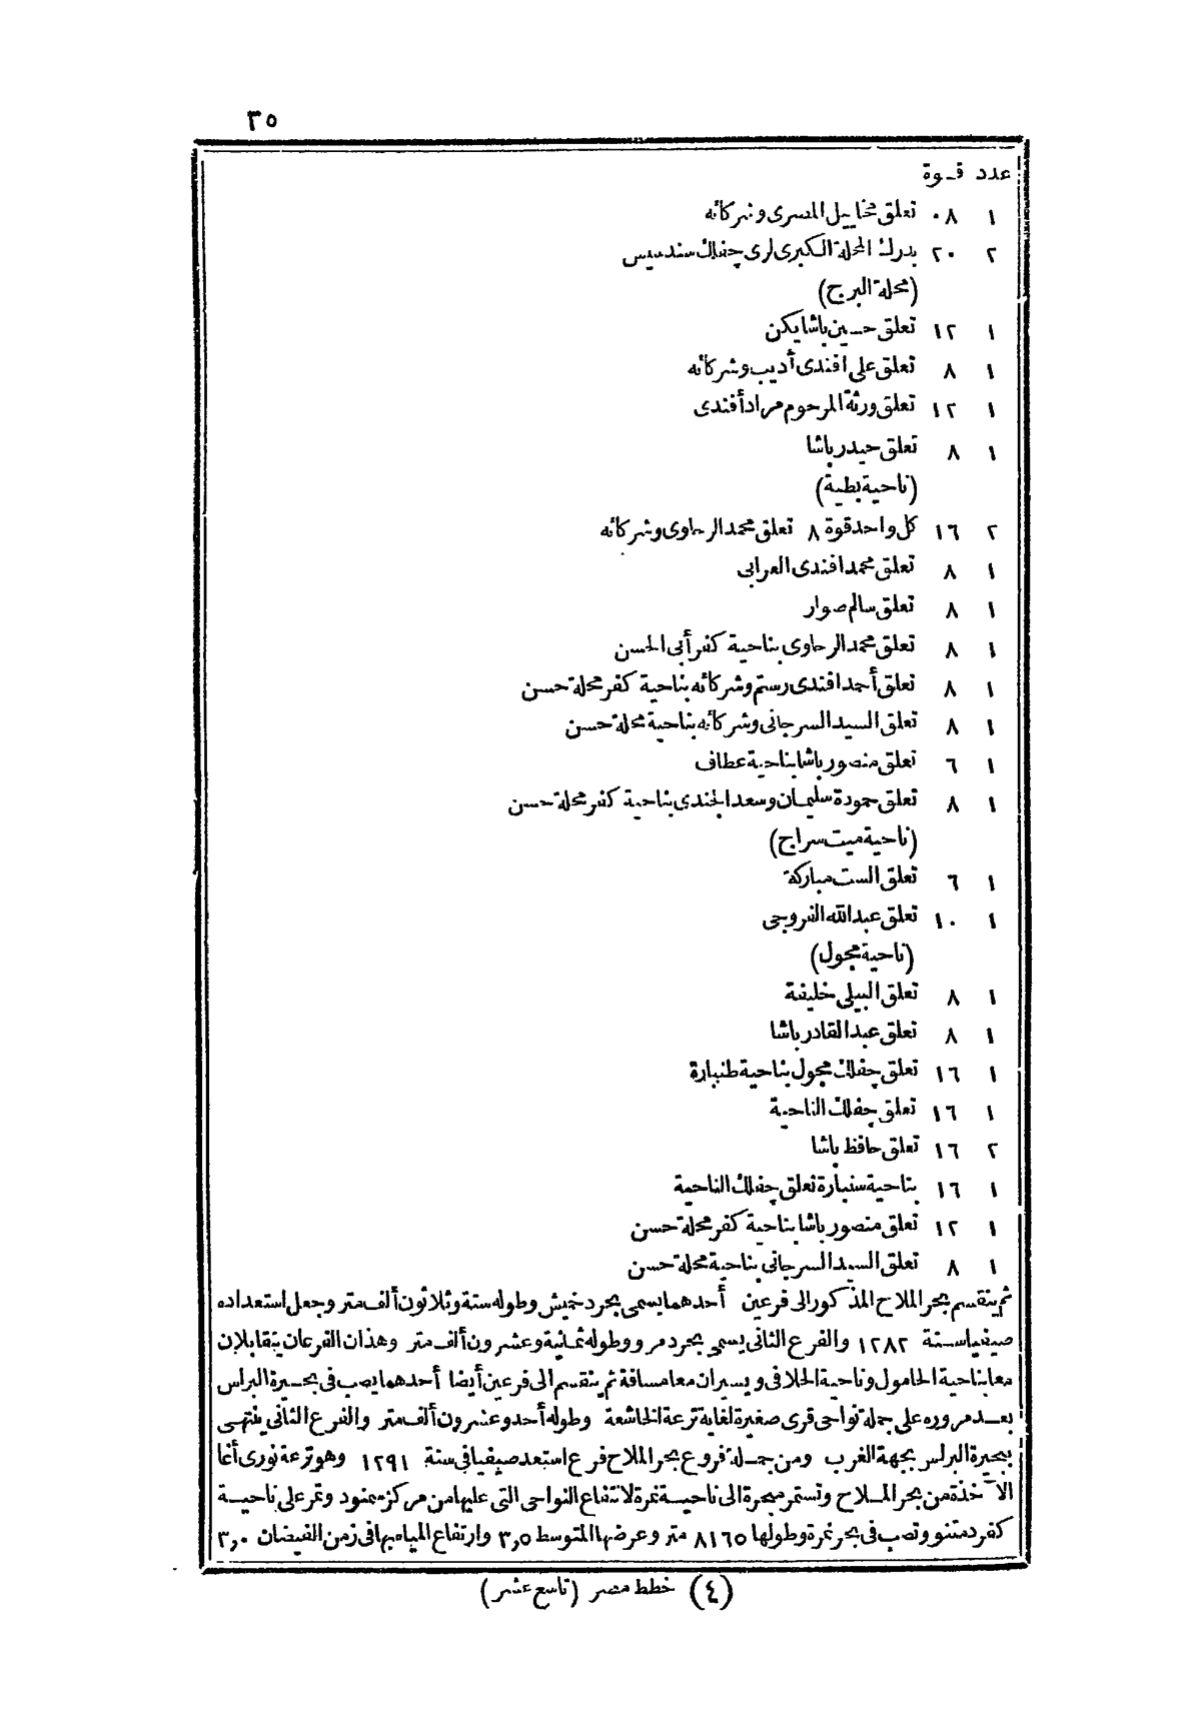 ٢٥
عدد قوة
١ ٠٨ تعلق مخاييل المصرى وشركائه
٢ ٢٠ بدرك المحلة الكبرى لرى جفلك سندسيس
(محلة البرج)
١ ١٢ تعلق حسين باشا يكن
١ ٨ تعلق على افندى أديب وشركائه
١ ١٢ تعلق ورثة المرحوم مراد أفندى
١ ٨ تعلق حيدر باشا
(ناحية بطينة)
٢ ١٦ كل واحد قوة ٨ تعلق محمد الرحاوى وشركائه
١ ٨ تعلق محمد افندى العرابى
١ ٨ تعلق سالم صوار
١ ٨ تعلق محمد الرحاوى بناحية كفر أبى الحسن
١ ٨ تعلق أحمد افندى رستم وشركائه بناحية كفر محلة حسن
١ ٨ تعلق السيد السرجانى وشركائه بناحية محلة حسن
١ ٦ تعلق منصور باشا بناحية عطاف
١ ٨ تعلق حمودة سليمان وسعد الجندى بناحية كفر محلة حسن
(ناحية ميت سراج)
١ ٦ تعلق الست مباركة
١ ١٠ تعلق عبد الله الفروجى
(ناحية مجول)
١ ٨ تعلق البيلى خليفة
١ ٨ تعلق عبد القادر باشا
١ ١٦ تعلق جفلك مجول بناحية طنبارة
١ ١٦ تعلق جفلك الناحية
٢ ١٦ تعلق حافظ باشا
١ ١٦ بناحية سنبارة تعلق جفلك الناحية
١ ١٢ تعلق منصور باشا بناحية كفر محلة حسن
١ ٨ تعلق السيد السرجانى بناحية محلة حسن
ثم ينقسم بحر الملاح المذكور الى فرعين أحدهما يسمى بحر دخميش وطوله ستة وثلاثون ألف متر وجعل استعداده
صيفيا سنة ١٢٨٢ والفرع الثانى يسمى بحر دمرو وطوله ثمانية وعشرون ألف متر وهذان الفرعان يتقابلان
معا بناحية الحامول وناحية الحلافى ويسيران معا مسافة ثم ينقسم الى فرعين أيضا أحدهما يصب فى بحيرة البرلس
بعد مروره على جملة نواحى قرى صغيرة لغاية ترعة الخاشعة وطوله أحد وعشرون ألف متر والفرع الثانى ينتهى
ببحيرة البرلس بجهة الغرب ومن جملة فروع بحر الملاح فرع استعد صيفيا فى سنة ١٢٩١ وهو ترعة نورى أغا
الآخذة من بحر الملاح وتستمر مبحرة الى ناحية نمرة لانتفاع النواحى التى عليها من مركز سمنود وتمر على ناحية
كفر دمتنو وتصب فى بحر نمرة وطولها ٨١٦٥ متر وعرضها المتوسط ٣,٥ وارتفاع المياه بها فى زمن الفيضان ٣,٠
(٤) خطط مصر (تاسع عشر)